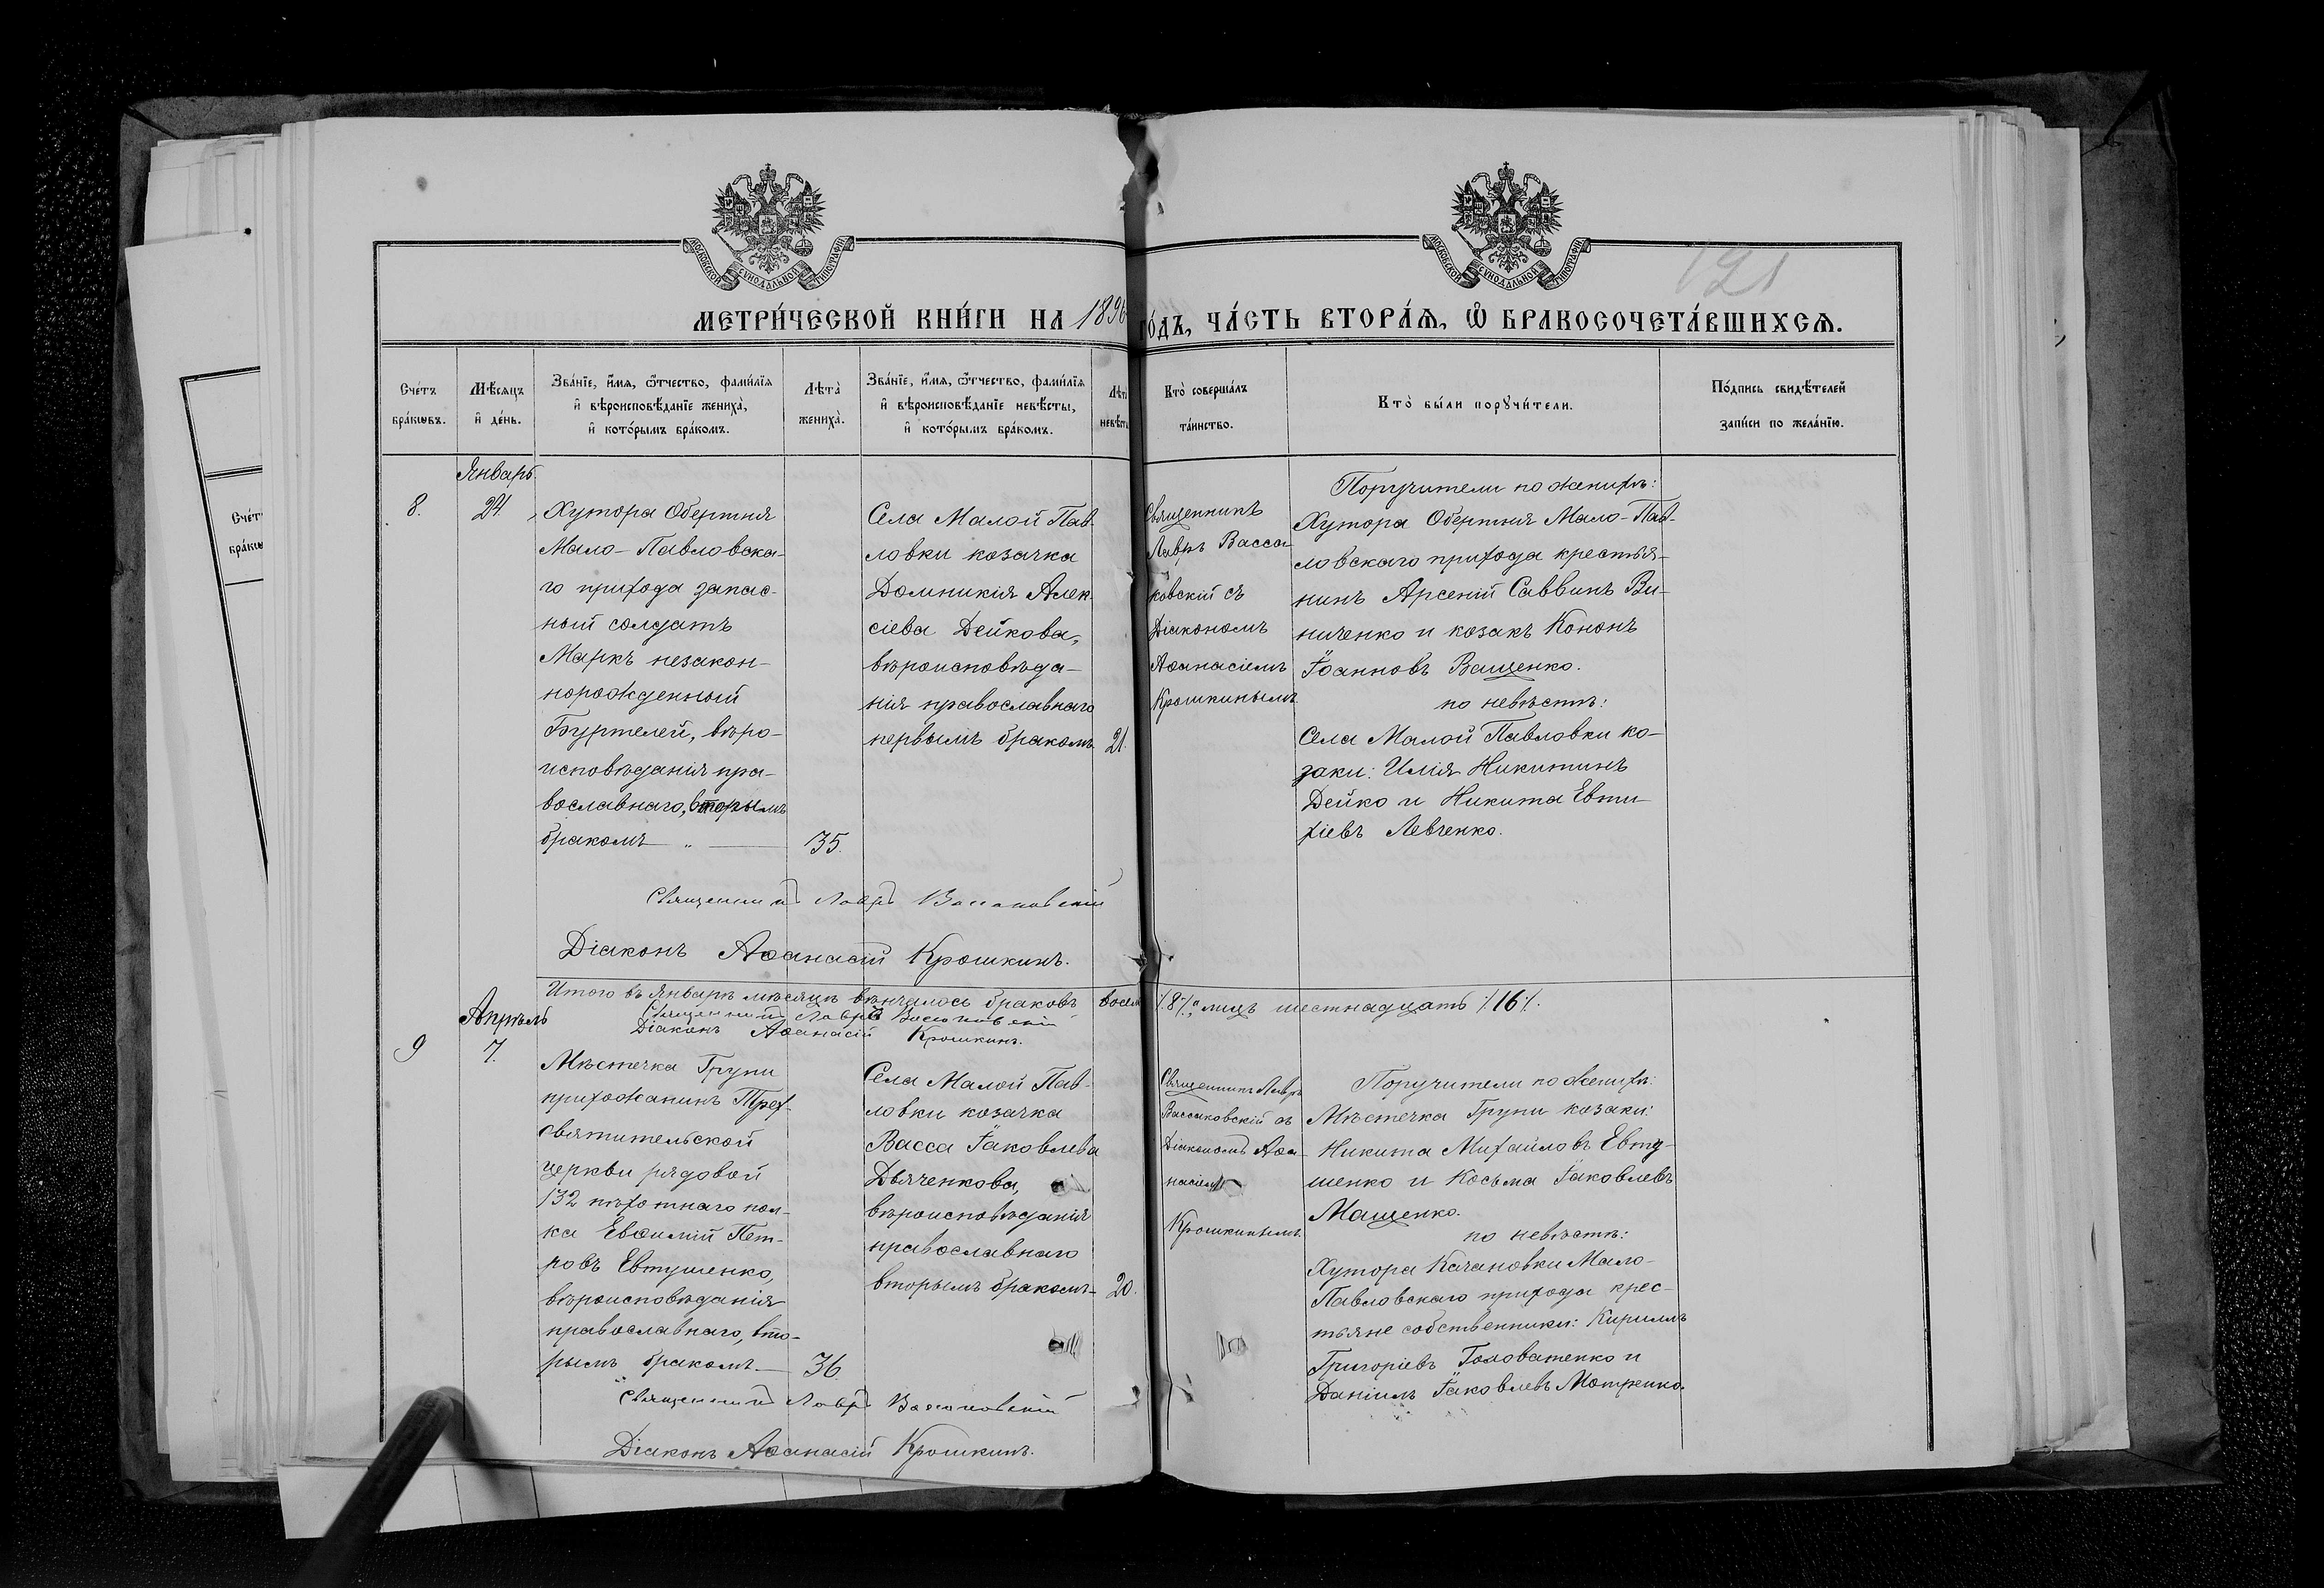 МОСКОВСКОЙ СѴНОДАЛЬНОЙ ТИПОГРАФІИ
МОСКОВСКОЙ СѴНОДАЛЬНОЙ ТИПОГРАФІИ
121
МЕТРИ́ЧЕСКОЙ КНИ́ГИ НА 1896 ГО́ДЪ, ЧА́СТЬ ВТОРА́Ѧ, Ѽ БРАКОСОЧЕТА́ВШИХСѦ.
Сче́тъ бра́кѡвъ.
Мѣ́сѧцъ и де́нь.
Зва́нїе, и́мѧ, ѻ҆́тчество, фами́лїѧ и вѣроисповѣ́данїе жениха̀, и кото́рымъ бра́комъ.
Лѣта̀ жениха̀.
Зва́нїе, и́мѧ, ѻ҆́тчество, фами́лїѧ и вѣроисповѣ́данїе невѣ́сты, и кото́рымъ бра́комъ.
Лѣта̀ невѣ́сты
Кто̀ соверша́лъ та́инство.
Кто̀ бы́ли порꙋчи́тели.
По́дпись свидѣ́телей за́писи по жела́нїю.
Январь.
8.
24.
Хутора Обертня
Мало-Павловска-
го прихода запас-
ный солдатъ
Маркъ незакон-
норожденный
Буртелей, вѣро-
исповѣданія пра-
вославнаго, вторымъ
бракомъ — „ —
35.
Села Малой Пав-
ловки козачка
Домникія Алек
сіева Дейкова,
вѣроисповѣда-
нія православнаго
первымъ бракомъ
21.
Священникъ
Лавръ Васса
ковскій съ
Діакономъ
Аѳанасіемъ
Крошкинымъ
Поручители по женихѣ:
Хутора Обертня Мало-Пав-
ловскаго прихода крестья-
нинъ Арсеній Саввинъ Ви-
ниченко и козакъ Кононъ
Іоанновъ Ващенко.
по невѣстѣ:
Села Малой Павловки ко-
заки: Илія Никитинъ
Дейко и Никита Евти-
хіевъ Левченко.
Священникъ Лавръ Вассаковскій
Діаконъ Аѳанасій Крошкинъ.
Итого въ Январѣ мѣсяцѣ вѣнчалось браковъ восемь /8/, лицъ шестнадцать /16/.
Священникъ Лавръ Вассаковскій
Діаконъ Аѳанасій Крошкинъ.
Апрѣль
9
7.
Мѣстечка Груни
прихожанинъ Трех-
святительской
церкви рядовой
132 пѣхотнаго пол-
ка Евѳимій Пет-
ровъ Евтушенко,
вѣроисповѣданія
православнаго, вто-
рымъ бракомъ —
36
Села Малой Пав-
ловки козачка
Васса Іаковлева
Дяченкова,
вѣроисповѣданія
православнаго
вторымъ бракомъ-
20.
Священникъ Лавръ
Вассаковскій съ
Діакономъ Аѳа-
насіемъ
Крошкинымъ
Поручители по женихѣ:
Мѣстечка Груни козаки:
Никита Михайловъ Евту-
шенко и Косьма Іаковлевъ
Мащенко.
по невѣстѣ:
Хутора Качановки Мало-
Павловскаго прихода крес-
тьяне собственники: Кириллъ
Григоріевъ Головатенко и
Даніилъ Іаковлевъ Мотренко.
Священникъ Лавръ Вассаковскій
Діаконъ Аѳанасій Крошкинъ.